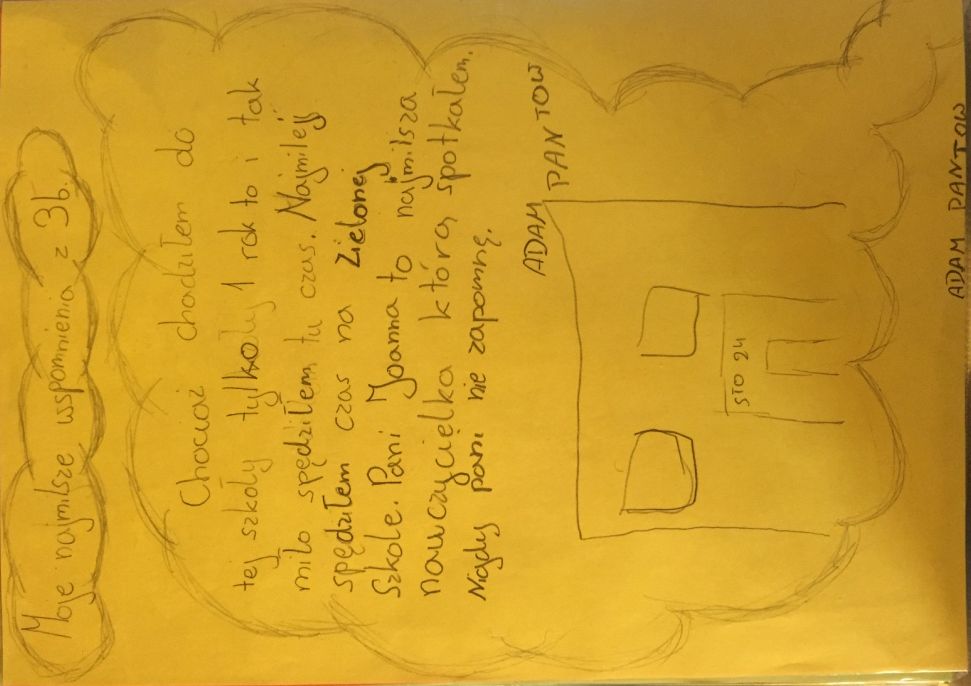 Moje najmilsze wspomnienia z 3b.
Chociaż chadziłem do
tej szkoły tylko 1 rok to i tak
miło spędziłem tu czas. Najmilej
spędziłem czas na Zielonej
Szkole. Pani Joanna to najmilsza
nauczycielka którą spotkałem.
Nigdy pani nie zapomnę.
ADAM PANTOW
STO 24
ADAM PANTOW